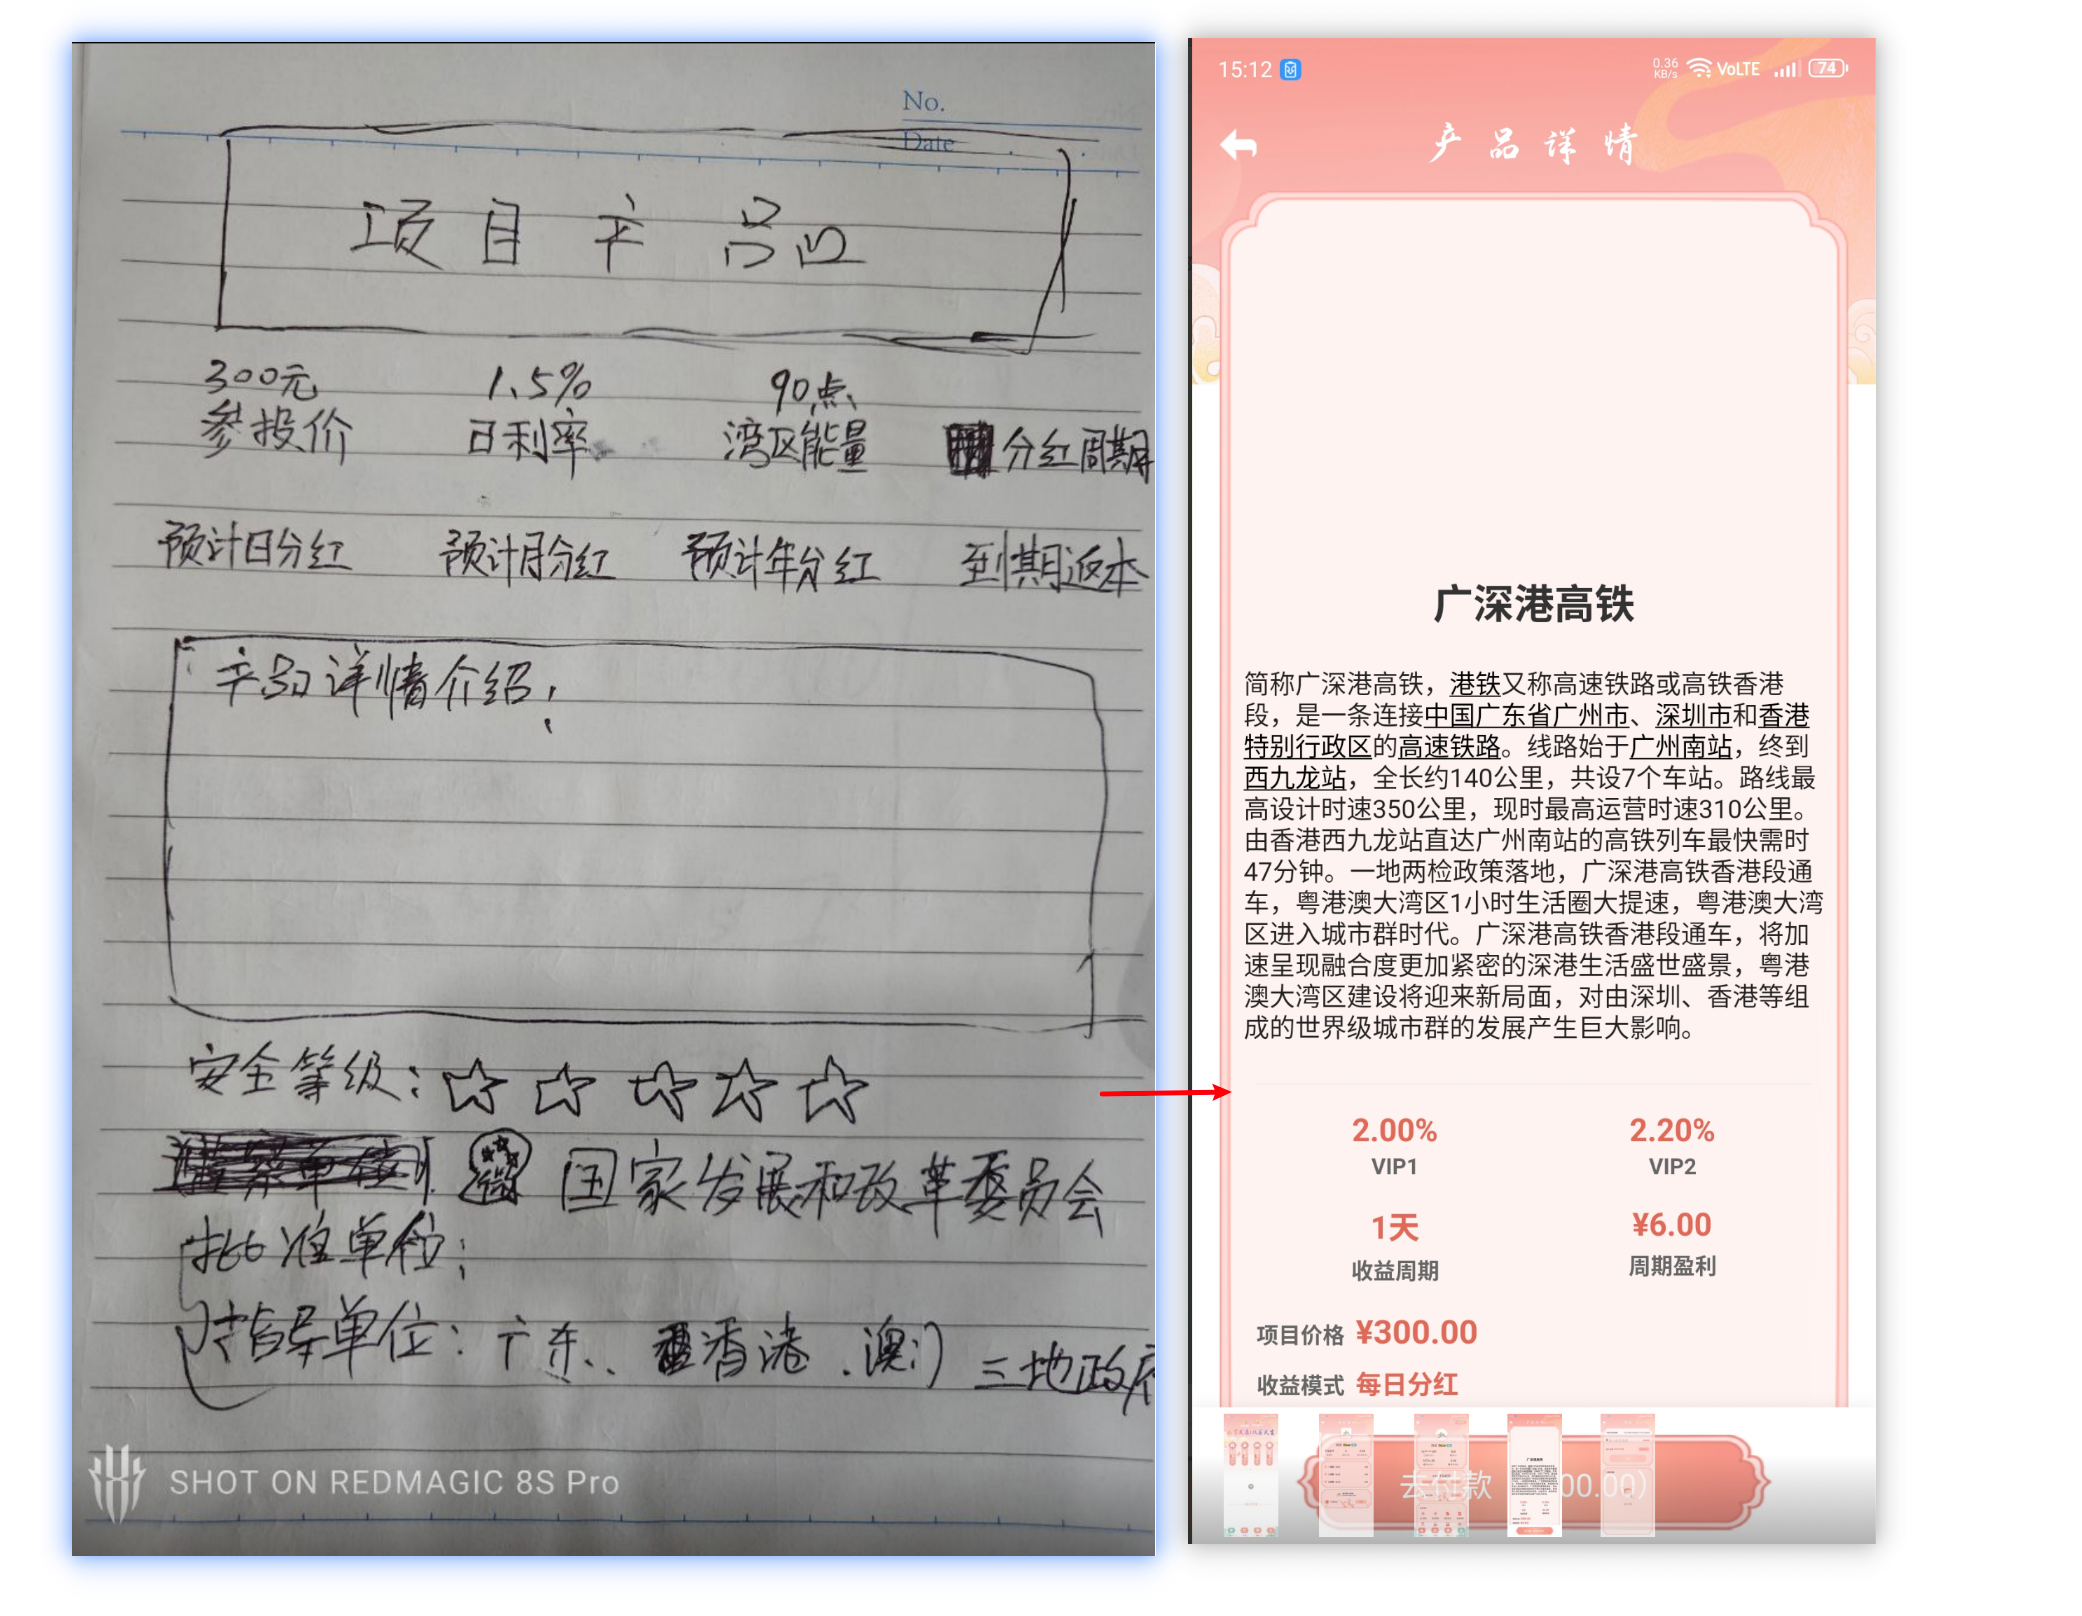 No.
Date
项目产品
300元 1.5% 90点
参投价 日利率 湾区能量 分红周期
预计日分红 预计月分红 预计年分红 到期返本
产品详情介绍:
安全等级:
国家发展和改革委员会
批准单位:
指导单位: 广东、香港.澳门 三地政府
SHOT ON REDMAGIC 8S Pro
15:12 0.36 KB/s VoLTE 74
产品详情
广深港高铁
简称广深港高铁，港铁又称高速铁路或高铁香港
段，是一条连接中国广东省广州市、深圳市和香港
特别行政区的高速铁路。线路始于广州南站，终到
西九龙站，全长约140公里，共设7个车站。路线最
高设计时速350公里，现时最高运营时速310公里。
由香港西九龙站直达广州南站的高铁列车最快需时
47分钟。一地两检政策落地，广深港高铁香港段通
车，粤港澳大湾区1小时生活圈大提速，粤港澳大湾
区进入城市群时代。广深港高铁香港段通车，将加
速呈现融合度更加紧密的深港生活盛世盛景，粤港
澳大湾区建设将迎来新局面，对由深圳、香港等组
成的世界级城市群的发展产生巨大影响。
2.00% 2.20%
VIP1 VIP2
1天 ¥6.00
收益周期 周期盈利
项目价格 ¥300.00
收益模式 每日分红
去付款 00.00)